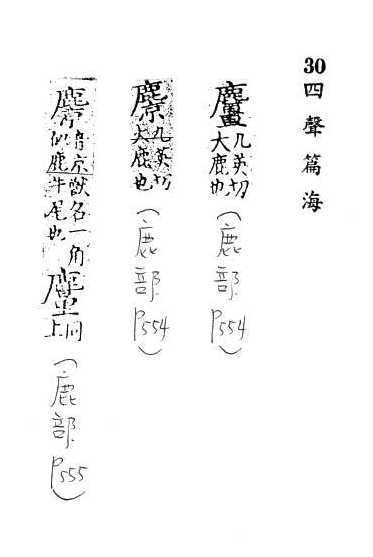 30四聲篇海
麠几英切大鹿也(鹿部P554)
麖几英切大鹿也(鹿部P554)
音 獸名一角似鹿牛尾也 上同(鹿部P555)